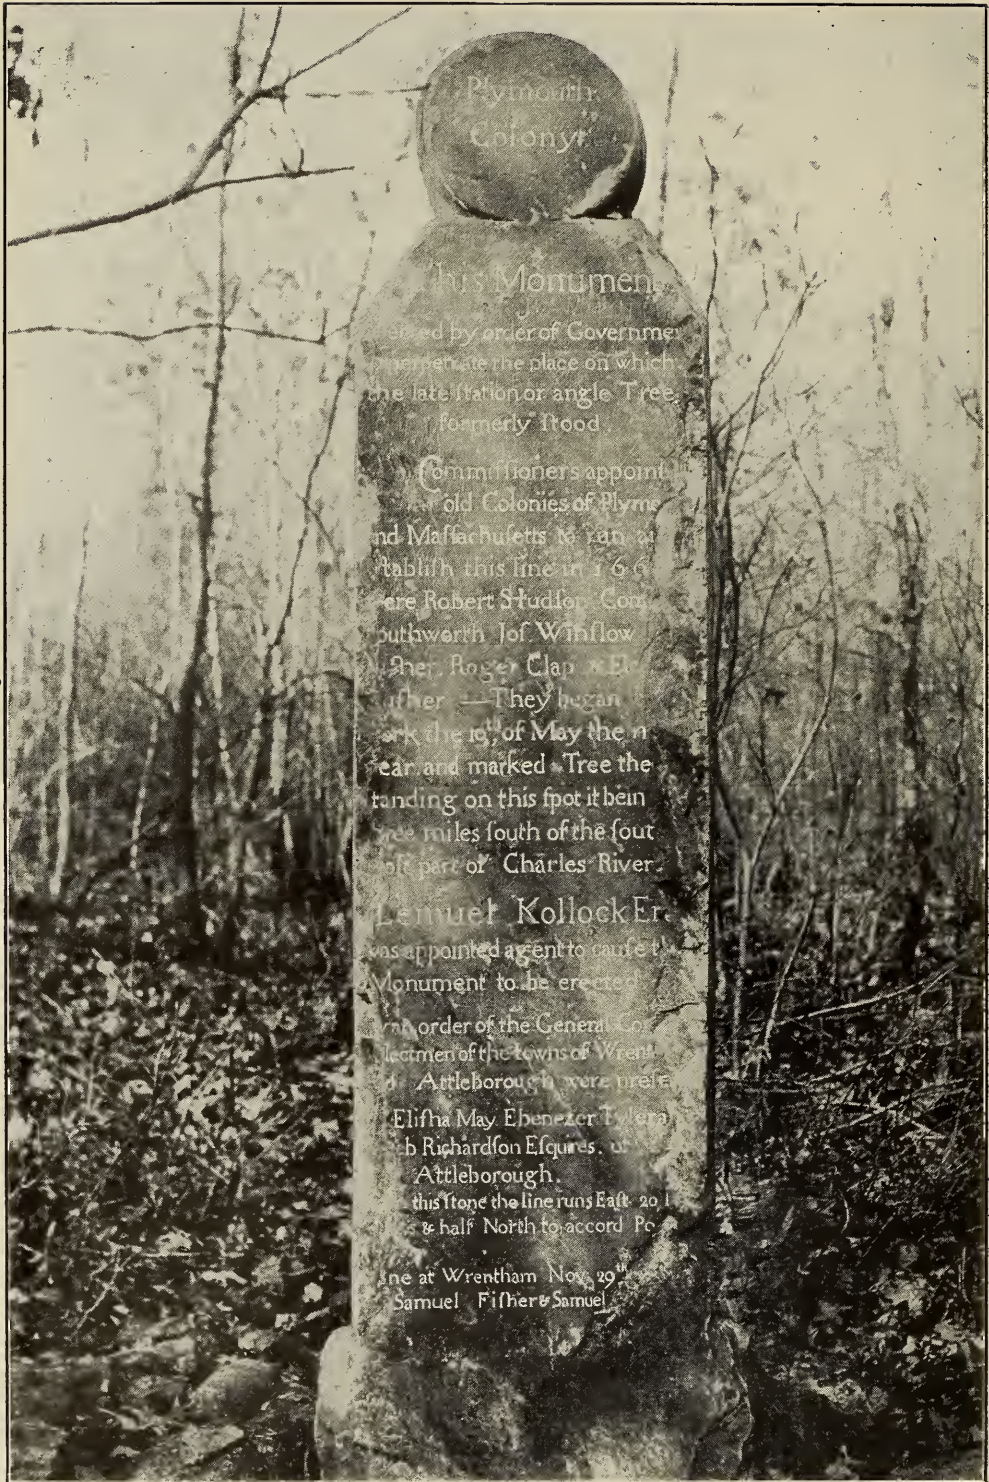 Plymouth
Colony
his Monumen
ected by order of Governme
the place on which
the late ſtation or angle Tree
formerly ſtood.
Commiſſioners appoint
old Colonies of Plymo
nd Maſſachuſetts to run
tabliſh this line in 166
ere Robert Studſon Con
outhworth Joſ. Winſlow
Roger Clap & El
iſher — They began
ork the 10th of May the n
ear and marked a Tree the
tanding on this ſpot it bein
ree miles ſouth of the ſout
part of Charles River.
Lemuel Kollock Eſ
was appointed agent to cauſe t
Monument to be erected
order of the General Co
lectmen of the towns of Wrent
Attleborough were preſe
Eliſha May Ebenezer Tyler a
b Richardſon Eſquires. of
Attleborough.
this ſtone the line runs Eaſt 20
& half North to accord Po
ne at Wrentham Nov. 29th
Samuel Fiſher & Samuel